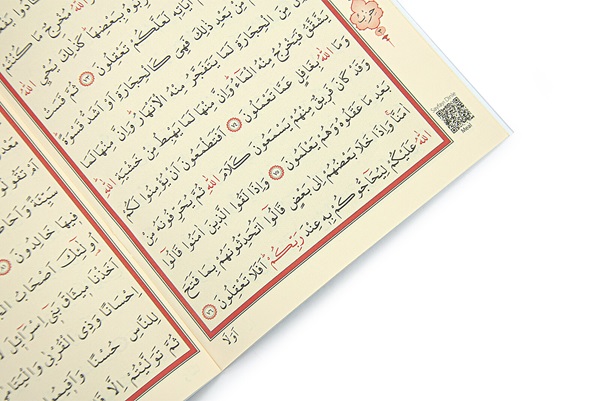 اللهُ مُخْرِجٌ مَا كُنْتُمْ
بِبَعْضِهَا كَذٰلِكَ يُحْيِ اللهُ
اٰيَاتِهٖ لَعَلَّكُمْ تَعْقِلُونَ ٧٣ ثُمَّ قَسَتْ
مِنْ بَعْدِ ذٰلِكَ فَهِىَ كَالْحِجَارَةِ اَوْ اَشَدُّ قَسْوَةً
مِنَ الْحِجَارَةِ لَمَا يَتَفَجَّرُ مِنْهُ الْاَنْهَارُ وَاِنَّ مِنْهَا لَمَا
يَشَّقَّقُ فَيَخْرُجُ مِنْهُ الْمَاءُ وَاِنَّ مِنْهَا لَمَا يَهْبِطُ مِنْ خَشْيَةِ اللهِ
وَمَا اللهُ بِغَافِلٍ عَمَّا تَعْمَلُونَ ٧٤ اَفَتَطْمَعُونَ اَنْ يُؤْمِنُوا لَكُمْ
وَقَدْ كَانَ فَرِيقٌ مِنْهُمْ يَسْمَعُونَ كَلَامَ اللهِ ثُمَّ يُحَرِّفُونَهُ مِنْ
بَعْدِ مَا عَقَلُوهُ وَهُمْ يَعْلَمُونَ ٧٥ وَاِذَا لَقُوا الَّذِينَ اٰمَنُوا قَالُوا
اٰمَنَّا وَاِذَا خَلَا بَعْضُهُمْ اِلٰى بَعْضٍ قَالُوا اَتُحَدِّثُونَهُمْ بِمَا فَتَحَ
اللهُ عَلَيْكُمْ لِيُحَاجُّوكُمْ بِهٖ عِنْدَ رَبِّكُمْ اَفَلَا تَعْقِلُونَ ٧٦
اَوَلَا
حزب
Meal
اَمْ تَقُولُ
سَيِّئَةً وَاَحَا
فِيهَا خَالِدُونَ
اُولٰئِكَ اَصْحَابُ
اَخَذْنَا مِيثَاقَ بَنِى اِسْرَائِلَ
اِحْسَانًا وَذِى الْقُرْبٰى وَالْيَتَامٰ
لِلنَّاسِ حُسْنًا وَاَقِيمُوا
ثُمَّ تَوَلَّيْتُمْ اِلَّا